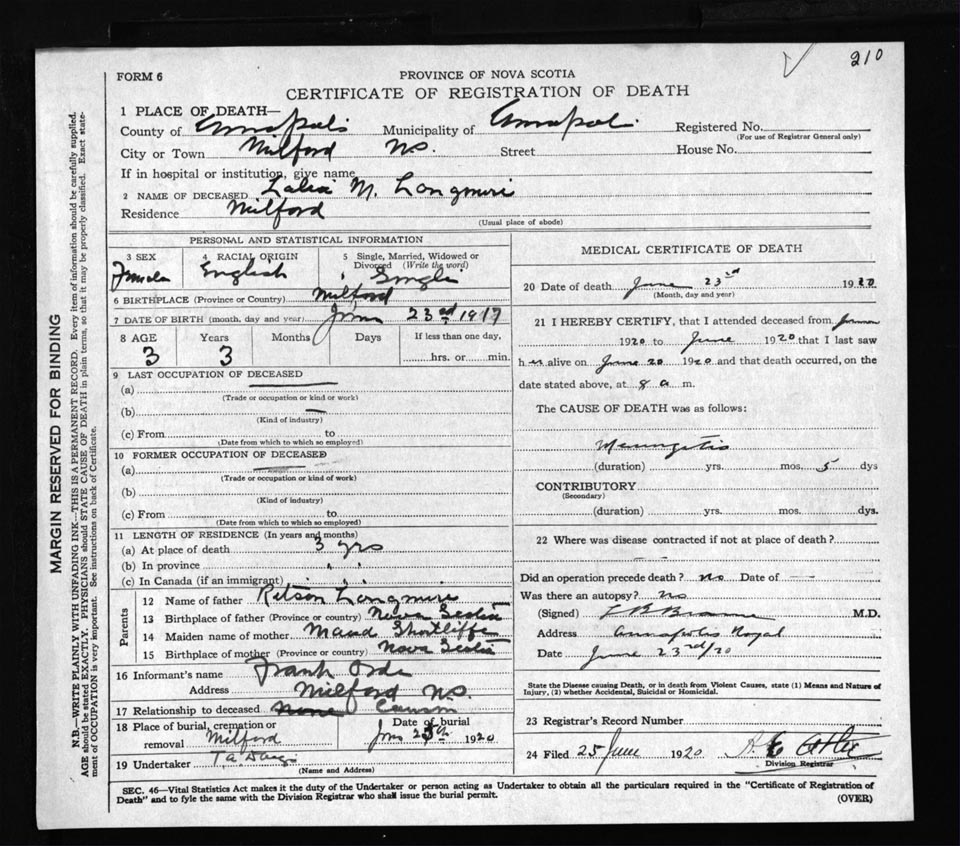 210
FORM 6
PROVINCE OF NOVA SCOTIA
CERTIFICATE OF REGISTRATION OF DEATH
1 PLACE OF DEATH—
County of Annapolis Municipality of Annapolis Registered No.
(For use of Registrar General only)
City or Town Milford N.S. Street House No.
If in hospital or institution, give name
2 NAME OF DECEASED M. Longmire
Residence Milford
(Usual place of abode)
PERSONAL AND STATISTICAL INFORMATION
3 SEX 4 RACIAL ORIGIN 5 Single, Married, Widowed or
Divorced (Write the word)
Female English Single
6 BIRTHPLACE (Province or Country) Milford
7 DATE OF BIRTH (month, day and year) June 23rd 1917
8 AGE Years Months Days If less than one day,
3 3 hrs. or min.
9 LAST OCCUPATION OF DECEASED
(a)
(Trade or occupation or kind or work)
(b)
(Kind of industry)
(c) From to
(Date from which to which so employed)
10 FORMER OCCUPATION OF DECEASED
(a)
(Trade or occupation or kind of work)
(b)
(Kind of industry)
(c) From to
(Date from which to which so employed)
11 LENGTH OF RESIDENCE (In years and months)
(a) At place of death 3 yrs
(b) In province " "
(c) In Canada (if an immigrant)
Parents
12 Name of father Ritson Longmire
13 Birthplace of father (Province or country) Nova Scotia
14 Maiden name of mother Maud Shortliffe
15 Birthplace of mother (Province or country) Nova Scotia
16 Informant's name Frank Orde
Address Milford N.S.
17 Relationship to deceased None Cousin
18 Place of burial, cremation or Date of burial
removal Milford June 1920
19 Undertaker
(Name and Address)
MEDICAL CERTIFICATE OF DEATH
20 Date of death June 23rd 1920
(Month, day and year)
21 I HEREBY CERTIFY, that I attended deceased from
1920 to June 1920 that I last saw
h er alive on June 20 1920 and that death occurred, on the
date stated above, at 8 a m.
The CAUSE OF DEATH was as follows:
Meningitis
(duration) yrs. mos. 5 dys
CONTRIBUTORY
(Secondary)
(duration) yrs. mos. dys.
22 Where was disease contracted if not at place of death?
Did an operation precede death? no Date of —
Was there an autopsy? no
(Signed) M.D.
Address Annapolis Royal
Date June 23rd/20
State the Disease causing Death, or in death from Violent Causes, state (1) Means and Nature of
Injury, (2) whether Accidental, Suicidal or Homicidal.
23 Registrar's Record Number
24 Filed 25 June 1920
Division Registrar
SEC. 46—Vital Statistics Act makes it the duty of the Undertaker or person acting as Undertaker to obtain all the particulars required in the "Certificate of Registration of
Death" and to fyle the same with the Division Registrar who shall issue the burial permit.
(OVER)
MARGIN RESERVED FOR BINDING
N.B.—WRITE PLAINLY WITH UNFADING INK—THIS IS A PERMANENT RECORD. Every item of information should be carefully supplied.
AGE should be stated EXACTLY. PHYSICIANS should STATE CAUSE OF DEATH in plain terms, so that it may be properly classified. Exact state-
ment of OCCUPATION is very important. See instructions on back of Certificate.